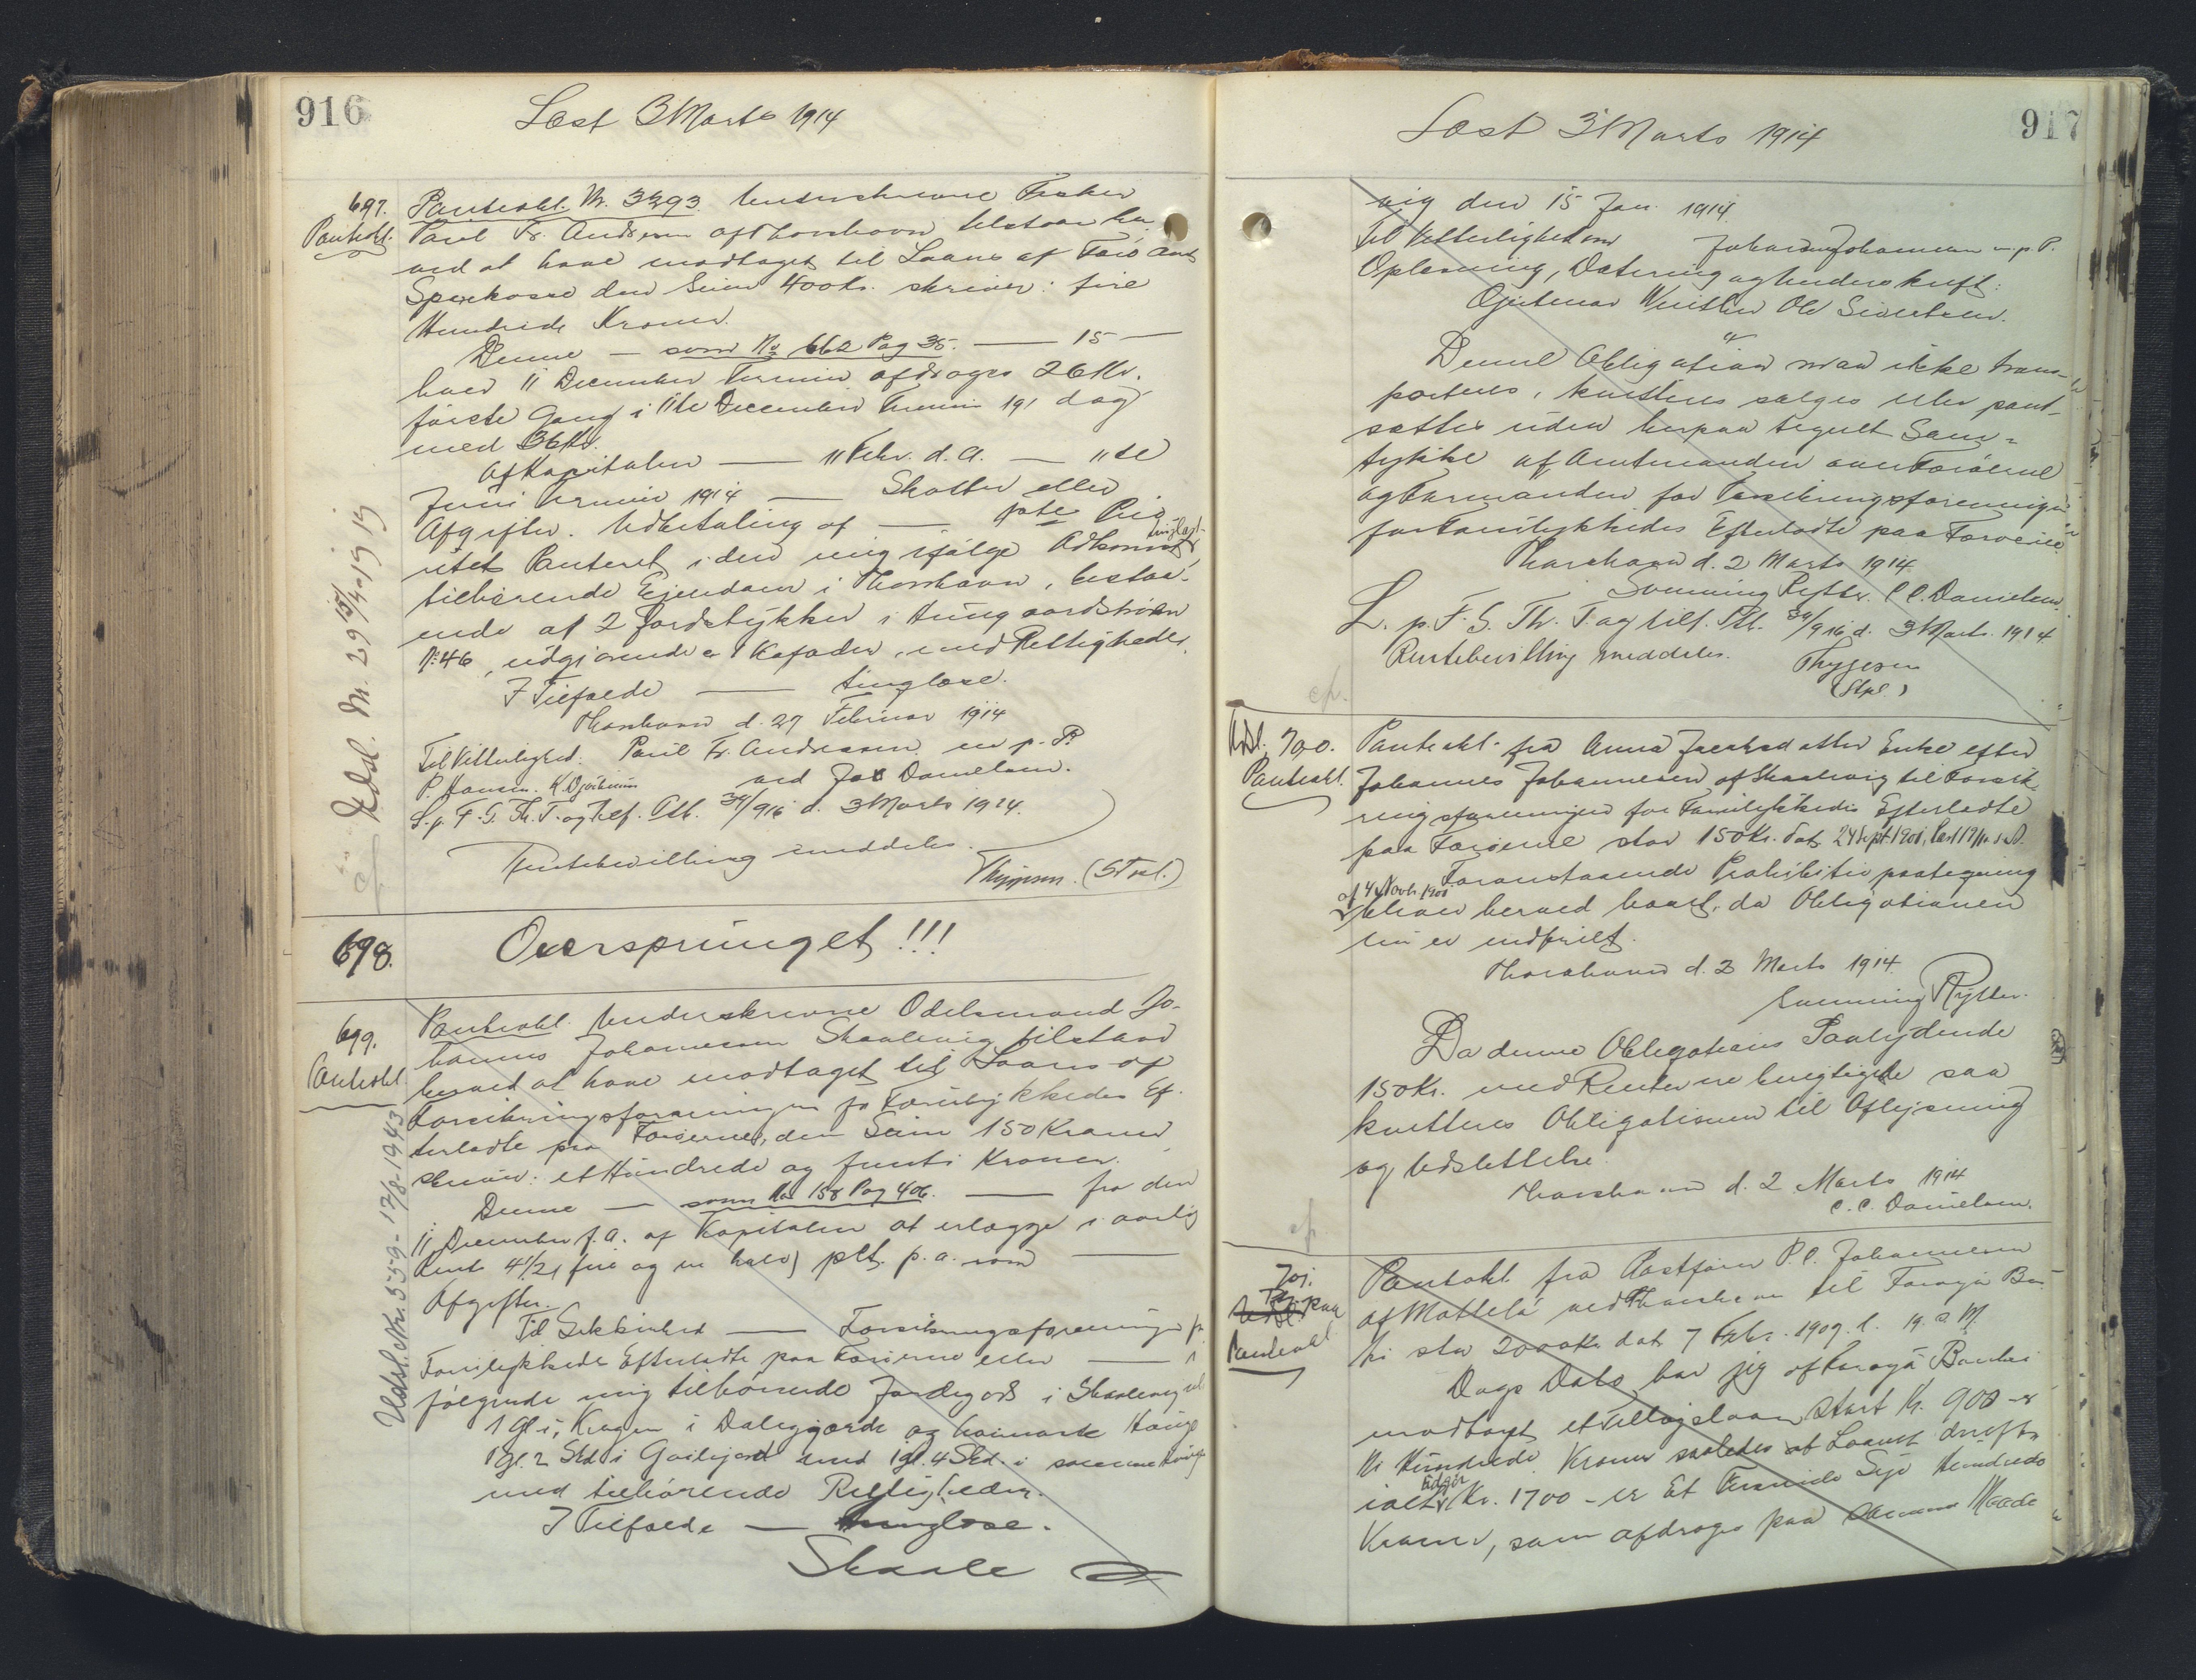 916
Læst 3 Marts 1914
697.
Panteobl.
Panteobl. Nr. 3293. Underskrevne Fisker
Paul Fr. Andresen af Thorshavn tilstaar her
ved at have modtaget til Laans af Færø Amts
Sparekasse den Sum 400 Kr. skriver: fire
Hundrede Kroner.
Denne — som No 662 Pag 35. — 15 —
hver 11 December Termin afdrages 26 Kr.
første Gang i 11te December Termin 191 dog
med 36 Kr.
Af Kapitalen — 11 Febr. d. A. — 11te
Juni Termin 1914 — Skatter eller
Afgifter. Udbetaling af — 1ste Prio
ritets Panteret i den mig ifølge Adkomst tinglæst
tilhørende Ejendom i Thorshavn, bestaa-
ende af 2 Jordstykker i
No 46, udgjørende med Rettigheder.
I Tilfælde — tinglæse.
Thorshavn d. 27 Februar 1914
Til Vitterlighed: Paul Fr. Andresen m. p. P.
P. Hansen. K. Djurhuus ved Jac Danielsen.
L. p. F. S. Th. T. og tilf. Ptb. 34/916 d. 3 Marts 1914.
Rentebevilling meddeles.
Thygesen. (Stpl.)
Udsl. Nr. 29 15/4-1919
698.
Oversprunget!!!
699.
Panteobl.
Panteobl. Underskrevne Odelsmand Jo-
hannes Johannesen Skaalevig tilstaar
herved at have modtaget til Laans af
Forsikringsforeningen for Familykkedes Ef-
terladte paa Færøerne, den Sum 150 Kroner
skriver: et Hundrede og femti Kroner.
Denne — som No 158 Pag 406. — fra den
11 December f. A. af Kapitalen at erlægge i aarlig
Rente 4 1/2 (fire og en halv) pCt. p. a. som —
Afgifter.
Til Sikkerhed — Forsikringsforeningen for
Familykkedes Efterladte paa Færøerne eller —
følgende mig tilhørende Jordegods i Skaalevig
1 Gl. i Kragen i Dalegjærde og
1 Gl. 2 Skd. i med 1 Gl. 4 Skd. i samme
med tilhørende Rettigheder.
I Tilfælde — tinglæse.
Skaale
Udsl. Nr. 559 - 17/8-1943
917
Læst 3 Marts 1914
vig den 15 Jan. 1914
Til Vitterlighed om Johannes Johannesen m. p. P.
Oplæsning, Datering og Underskrift:
Ole Sivertsen.
Denne Obligation maa ikke trans-
porteres, kvitteres sælges eller pant-
sættes uden herpaa tegnet Sam-
tykke af Amtmanden over Færøerne
og Formanden for Forsikringsforeningen
for Familykkedes Efterladte paa Færøerne
Thorshavn d. 2 Marts 1914.
Svenning Rytter. C. C. Danielsen.
L. p. F. S. Th. T. og tilf. Ptb. 34/916 d. 3 Marts 1914
Rentebevilling meddeles. Thygesen
(Stpl.)
Udsl. 700.
Panteobl.
Panteobl. fra Anna Jacobsdatter Enke efter
Johannes Johannesen af Skaalevig til Forsik-
ringsforeningen for Familykkedes Efterladte
paa Færøerne stor 150 Kr. dat 24 Sept 1901, læst
Foranstaaende Prohibitiv paategning
af 4 Novbr. 1901
bliver herved hævet, da Obligationen
nu er indfriet.
Thorshavn d. 2 Marts 1914.
Svenning Rytter.
Da denne Obligations Paalydende
150 Kr. med Renter ere berigtigede saa
kvitteres Obligationen til Aflysning
og Udslettelse.
Thorshavn d. 2 Marts 1914
C. C. Danielsen.
701.
paa
Panteobl
Panteobl. fra Postfører P. C. Johannesen
af ved Thorshavn til Førøya Ban
ki stor 2000 Kr. dat 7 Febr. 1909. l. 19. s. M.
Dags Dato har jeg af Førøya Banki
modtaget et Tillægslaan stort Kr. 900 - er
Ni Hundrede Kroner saaledes at Laanet derefter
ialt udgør Kr. 1700 - er Et Tusinde Syv Hundrede
Kroner, som afdrages paa samme Maade